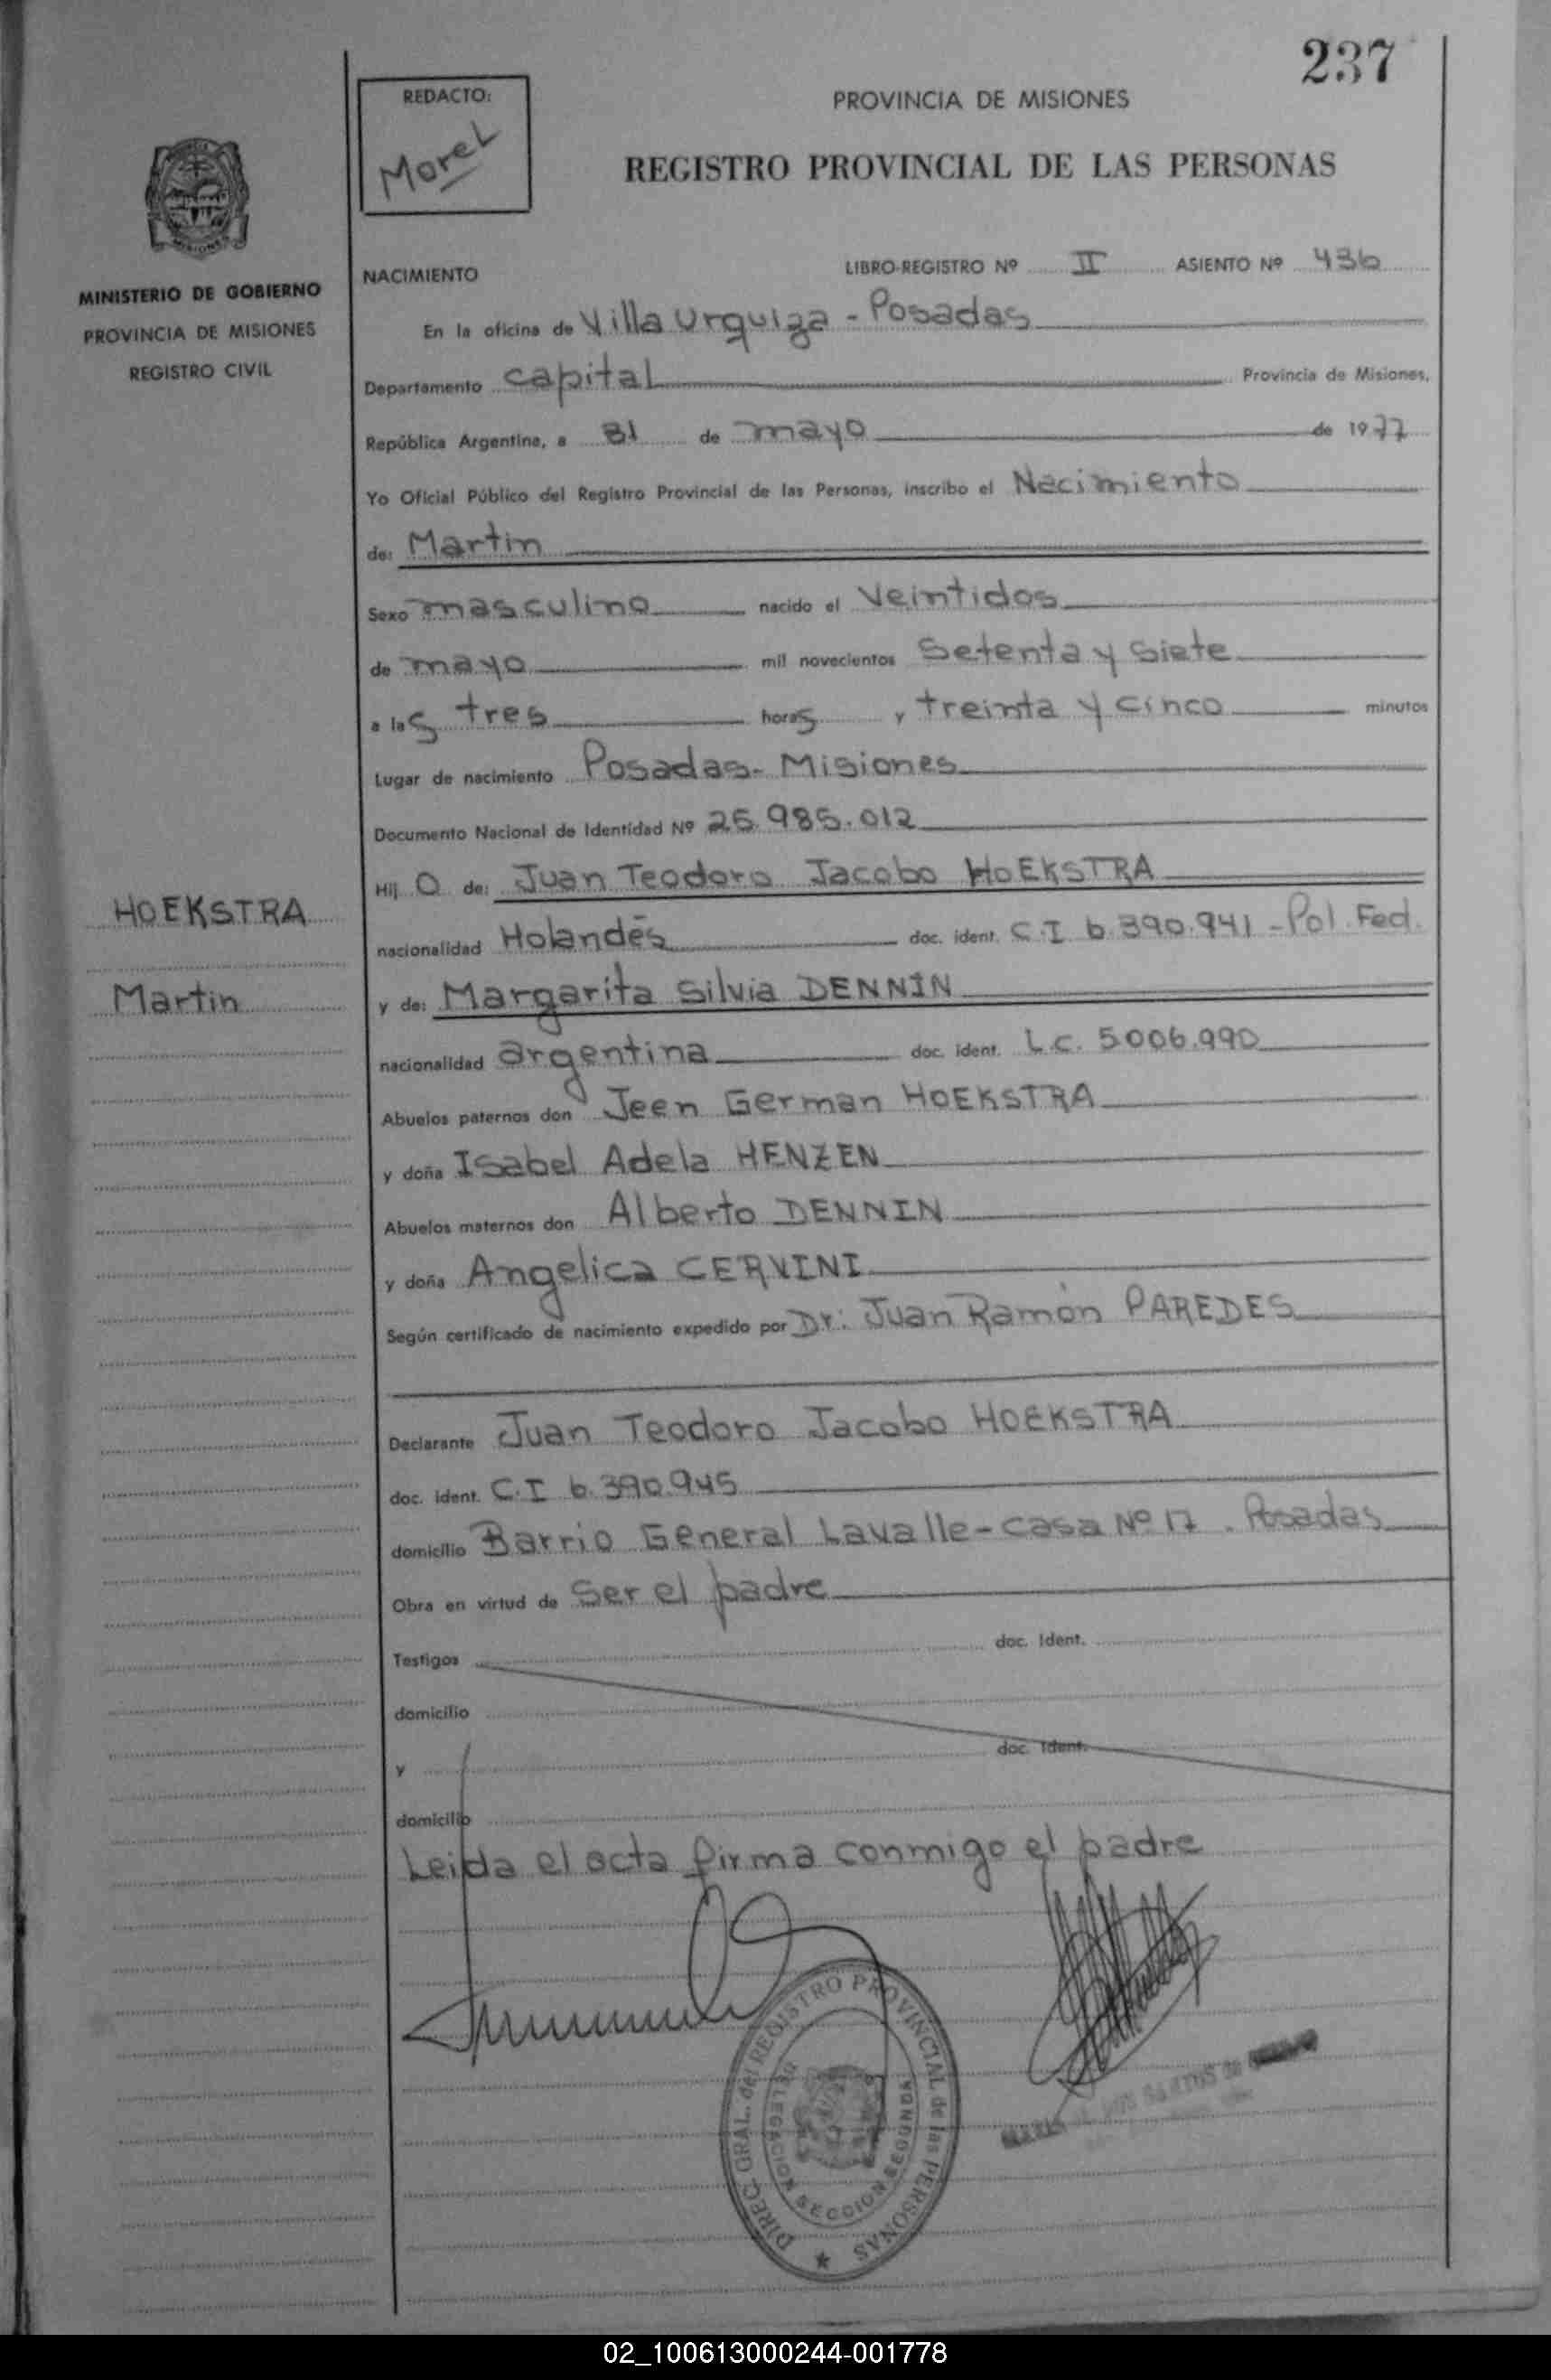 237
REDACTO:
Morel
PROVINCIA DE MISIONES
REGISTRO PROVINCIAL DE LAS PERSONAS
MISIONES
MINISTERIO DE GOBIERNO
PROVINCIA DE MISIONES
REGISTRO CIVIL
NACIMIENTO
LIBRO-REGISTRO Nº II ASIENTO Nº 436
En la oficina de Villa Urquiza - Posadas
Departamento capital Provincia de Misiones,
República Argentina, a 31 de mayo de 1977
Yo Oficial Público del Registro Provincial de las Personas, inscribo el Nacimiento
de: Martin
Sexo masculino nacido el Veintidos
de mayo mil novecientos Setenta y Siete
a las tres horas y treinta y cinco minutos
Lugar de nacimiento Posadas - Misiones
Documento Nacional de Identidad Nº 25.985.012
Hij O de: Juan Teodoro Jacobo HOEKSTRA
HOEKSTRA
nacionalidad Holandés doc. ident. C.I 6.390.941 - Pol. Fed.
Martin
y de: Margarita Silvia DENNIN
nacionalidad argentina doc. ident. L.C. 5.006.990
Abuelos paternos don Jeen German HOEKSTRA
y doña Isabel Adela HENZEN
Abuelos maternos don Alberto DENNIN
y doña Angelica CERVINI
Según certificado de nacimiento expedido por Dr: Juan Ramón PAREDES
Declarante Juan Teodoro Jacobo HOEKSTRA
doc. ident. C.I 6.390.945
domicilio Barrio General Lavalle - casa Nº 17. Posadas
Obra en virtud de Ser el padre
Testigos doc. Ident.
domicilio
y doc. Ident.
domicilio
Leida el acta firma conmigo el padre
DIREC. GRAL. del REGISTRO PROVINCIAL de las PERSONAS
DELEGACION SECCION SEGUNDA
02_100613000244-001778